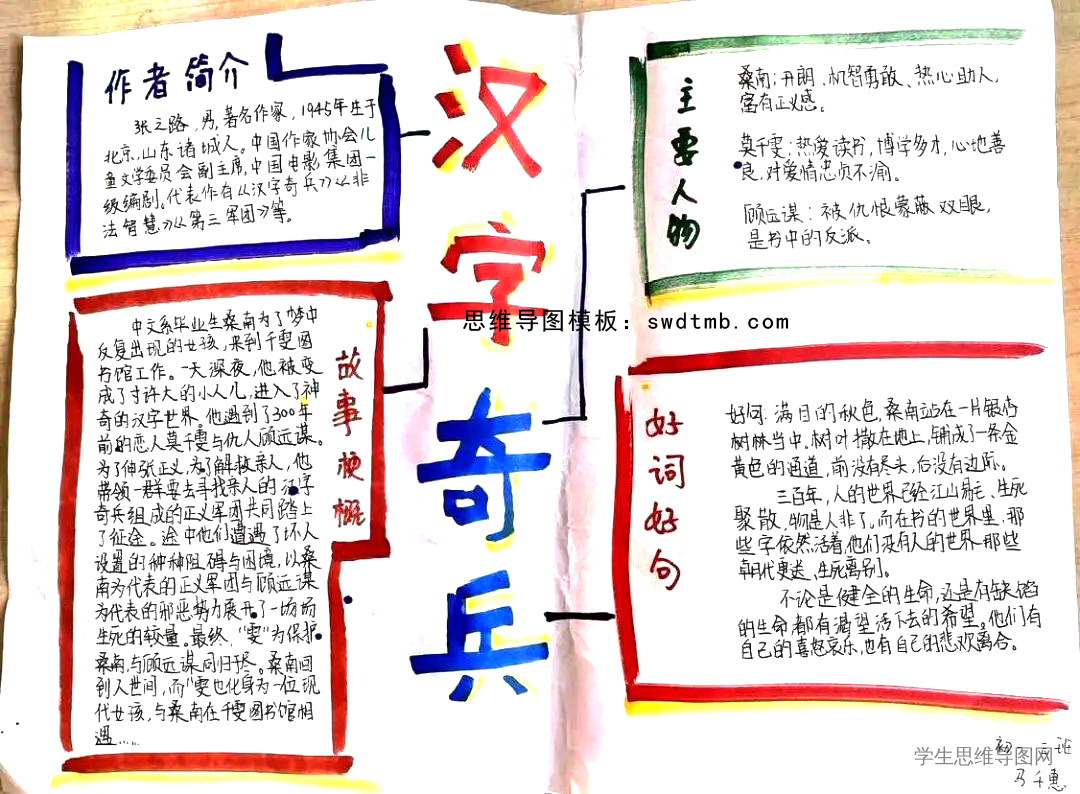 作者简介
张之路,男,著名作家,1945年生于
北京,山东诸城人。中国作家协会儿
童文学委员会副主席,中国电影集团一
级编剧。代表作有《汉字奇兵》《非
法智慧》《第三军团》等。
故事梗概
中文系毕业生桑南为了梦中
反复出现的女孩,来到千雯图
书馆工作。一天深夜,他被变
成了寸许大的小人儿,进入了神
奇的汉字世界。他遇到了300年
前的恋人莫千雯与仇人顾远谋。
为了伸张正义,为了解救亲人,他
带领一群要去寻找亲人的汉字
奇兵组成的正义军团共同踏上
了征途。途中他们遭遇了坏人
设置的种种阻碍与困境,以桑
南为代表的正义军团与顾远谋
为代表的邪恶势力展开了一场
生死的较量。最终,“雯”为保护
桑南,与顾远谋同归于尽。桑南回
到人世间,而“雯也化身为一位现
代女孩,与桑南在千雯图书馆相
遇……
汉字奇兵
思维导图模板:swdtmb.com
主要人物
桑南:开朗、机智勇敢、热心助人,
富有正义感。
莫千雯:热爱读书,博学多才,心地善
良,对爱情忠贞不渝。
顾远谋:被仇恨蒙蔽双眼,
是书中的反派。
好词好句
好句:满目的秋色,桑南站在一片银杏
树林当中,树叶撒在地上,铺成了一条金
黄色的通道,前没有尽头,后没有边际。
三百年,人的世界已经江山易主、生死
聚散,物是人非了。而在书的世界里,那
些字依然活着,他们没有人的世界那些
朝代更迭、生死离别。
不论是健全的生命,还是有缺陷
的生命都有渴望活下去的希望。他们有
自己的喜怒哀乐,也有自己的悲欢离合。
初一二班
学生思维导图网
马千惠